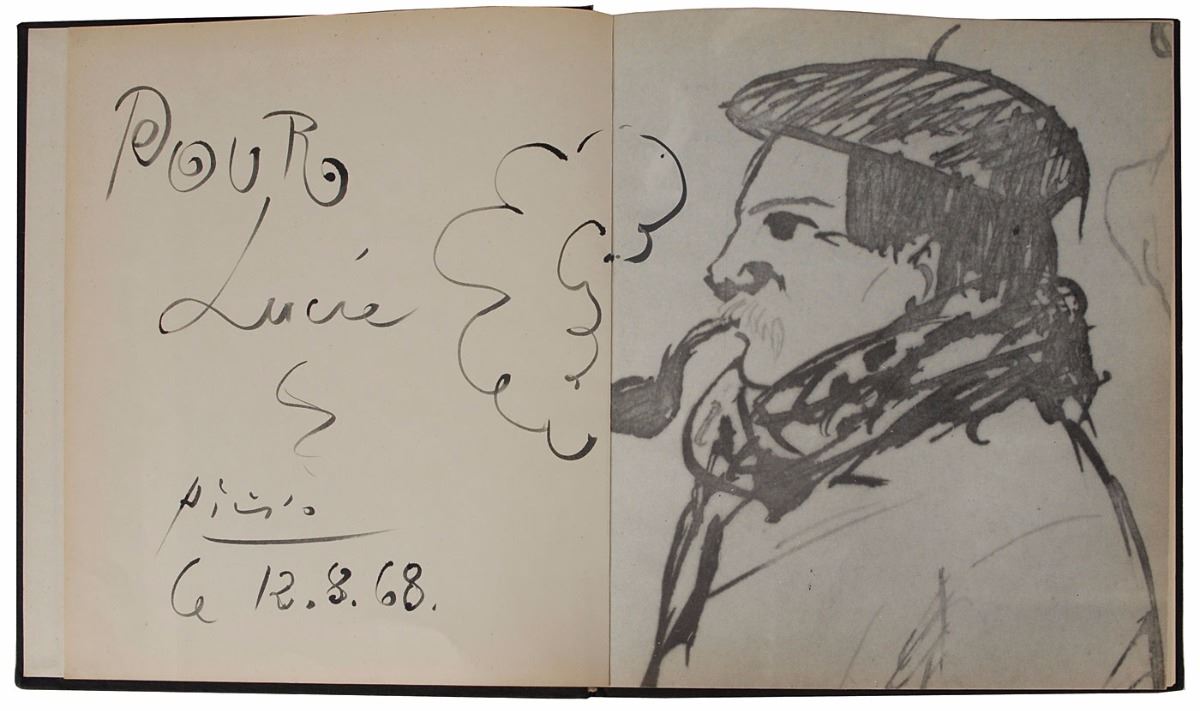 POUR
Lucie
Picasso
le 12.8.68.